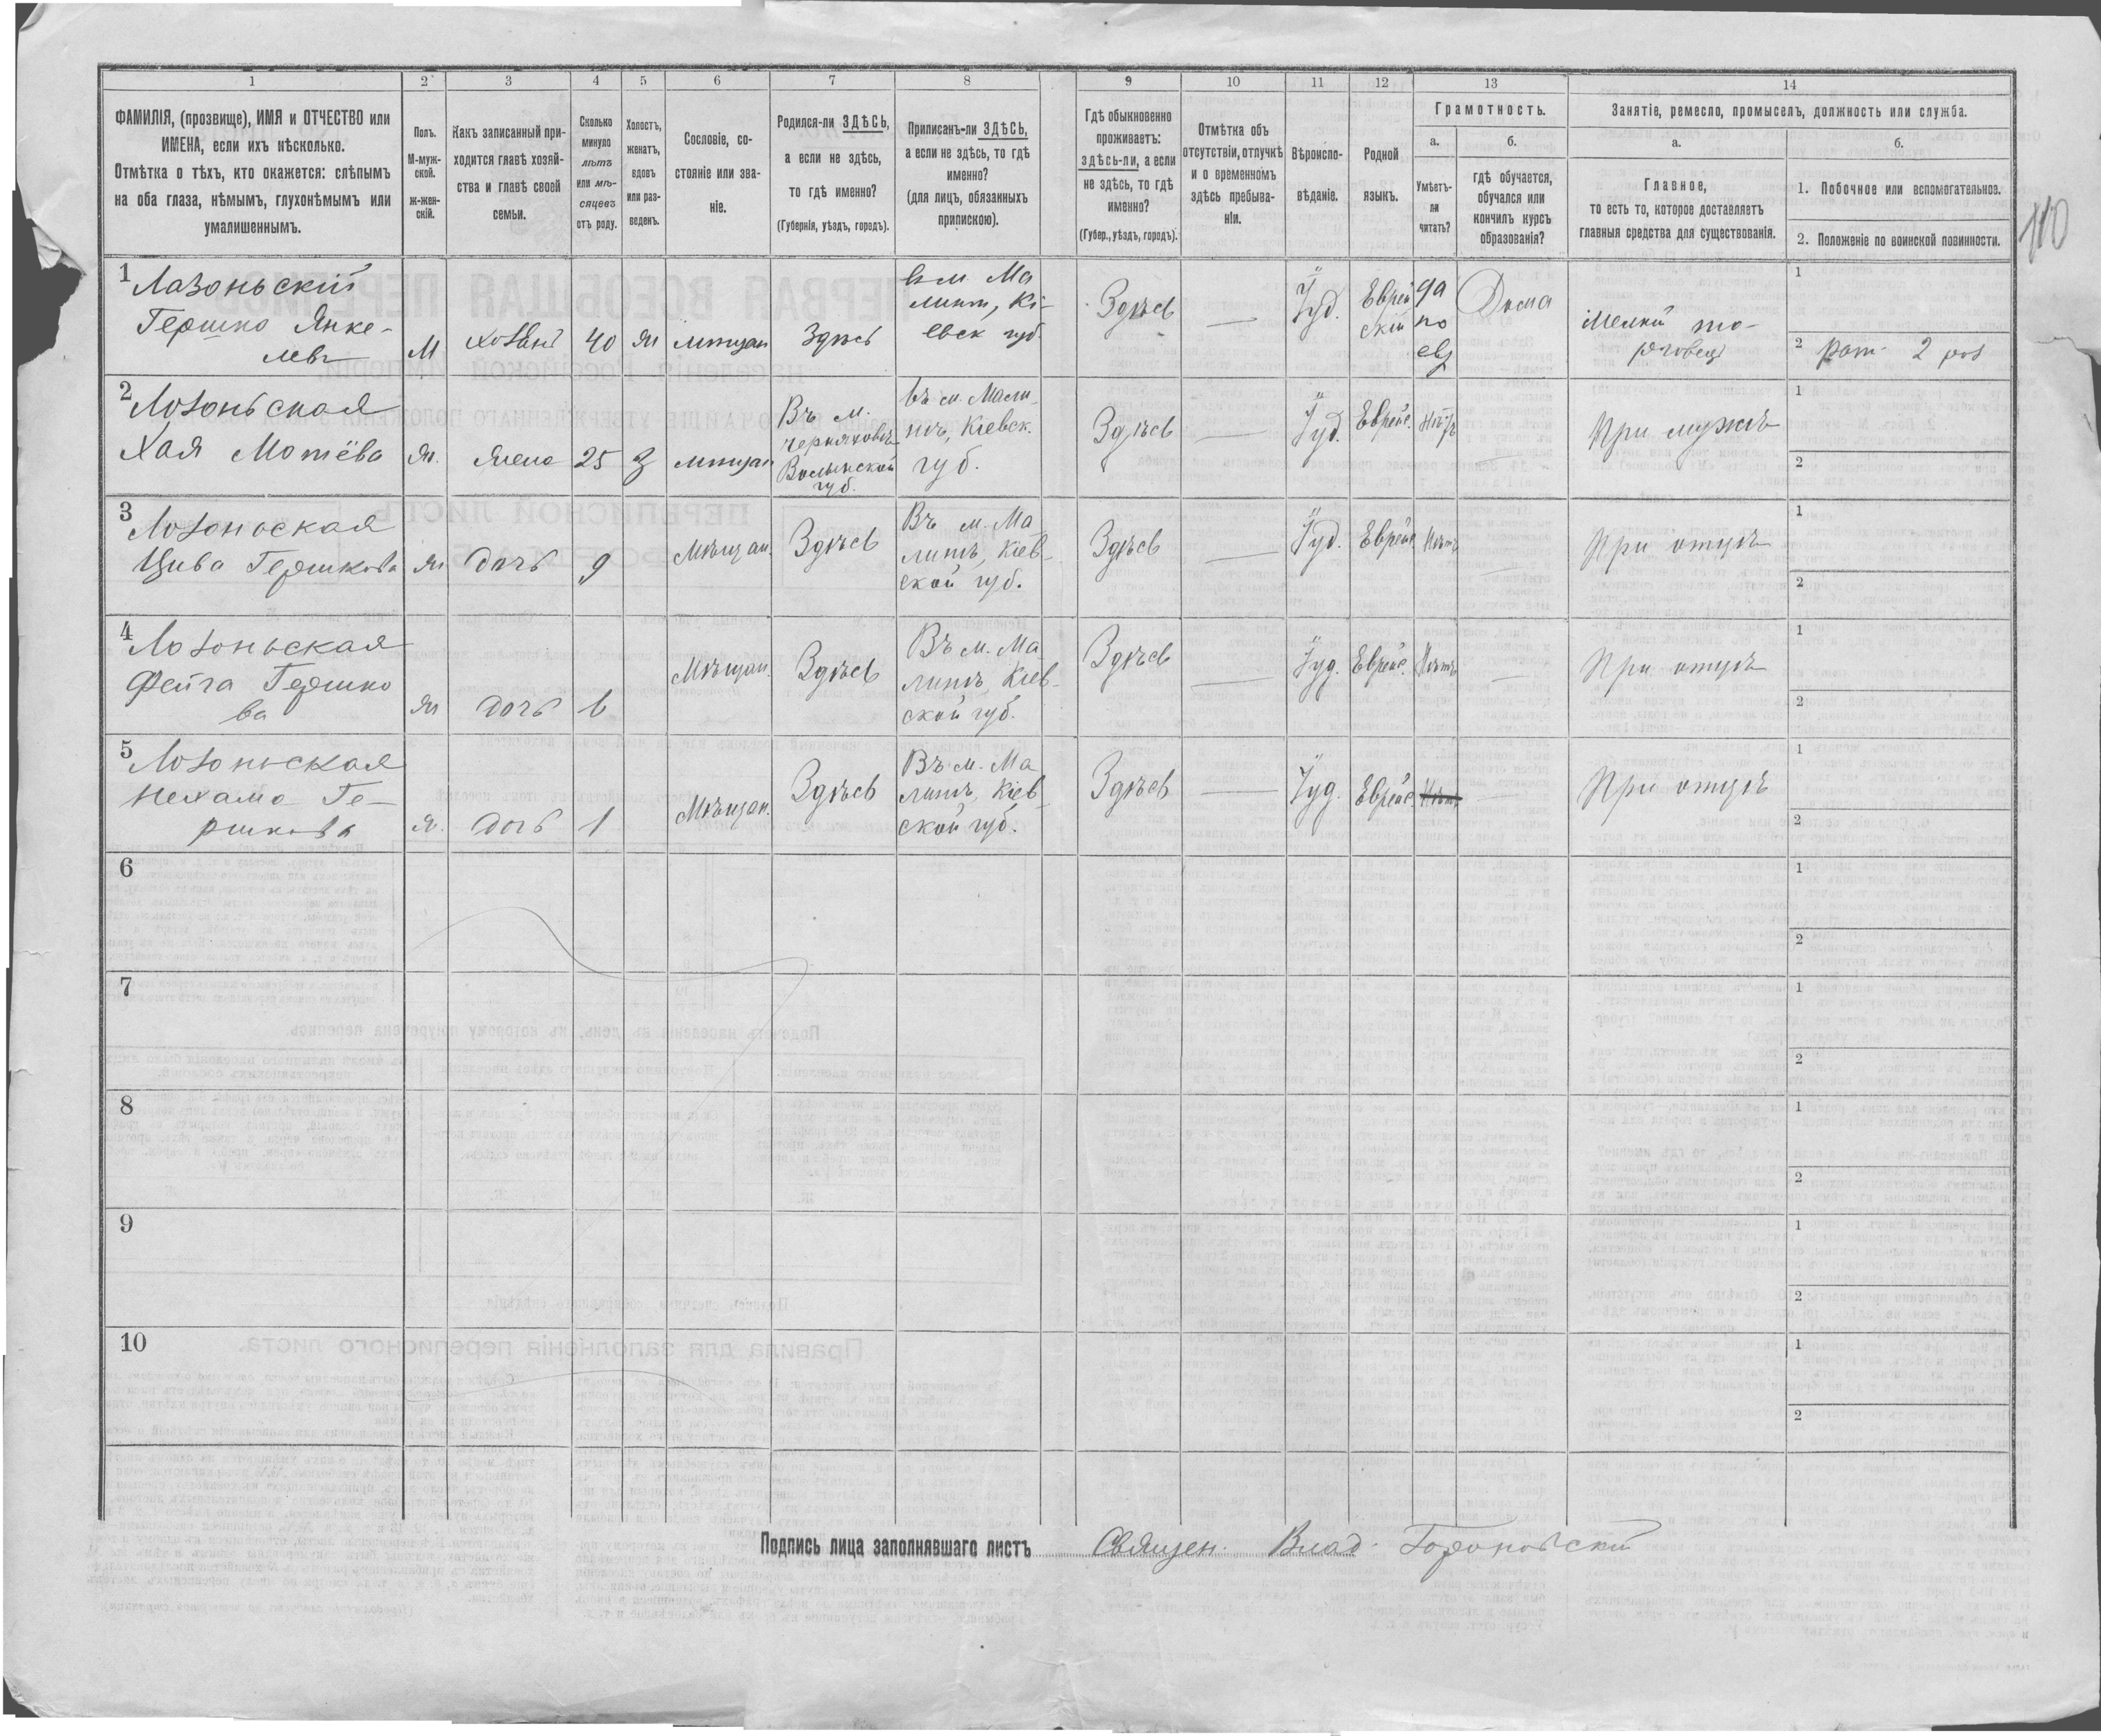 1 2 3 4 5 6 7 8 9 10 11 12 13 14
ФАМИЛІЯ, (прозвище), ИМЯ и ОТЧЕСТВО или
ИМЕНА, если ихъ нѣсколько.
Отмѣтка о тѣхъ, кто окажется: слѣпымъ
на оба глаза, нѣмымъ, глухонѣмымъ или
умалишеннымъ.
Полъ.
М-муж-
ской.
Ж-жен-
скій.
Какъ записанный при-
ходится главѣ хозяй-
ства и главѣ своей
семьи.
Сколько
минуло
лѣтъ
или мѣ-
сяцевъ
отъ роду.
Холостъ,
женатъ,
вдовъ
или раз-
веденъ.
Сословіе, со-
стояніе или зва-
ніе.
Родился-ли ЗДѢСЬ,
а если не здѣсь,
то гдѣ именно?
(Губернія, уѣздъ, городъ).
Приписанъ-ли ЗДѢСЬ,
а если не здѣсь, то гдѣ
именно?
(для лицъ, обязанныхъ
припискою).
Гдѣ обыкновенно
проживаетъ:
здѣсь-ли, а если
не здѣсь, то гдѣ
именно?
(Губер., уѣздъ, городъ).
Отмѣтка объ
отсутствіи, отлучкѣ
и о временномъ
здѣсь пребыва-
ніи.
Вѣроиспо-
вѣданіе.
Родной
языкъ.
Грамотность.
а.
Умѣетъ-
ли
читать?
б.
гдѣ обучается,
обучался или
кончилъ курсъ
образованія?
Занятіе, ремесло, промыселъ, должность или служба.
а.
Главное,
то есть то, которое доставляетъ
главныя средства для существованія.
б.
1. Побочное или вспомогательное.
2. Положеніе по воинской повинности.
110
1 Лазоньскій
Гершко Янке-
левъ
М
хозяинъ
40
жн
мѣщан
Здѣсь
Ма
линѣ, Кі-
евск губ.
Здѣсь
—
Іуд.
Еврей
скій
да
по
евр
Дома
Мелкій то-
рговецъ
1
2 рат. 2 раз
2 Лозоньская
Хая Мотёва
жн.
жена
25
З
мѣщан
Въ м.
Черняховѣ
Волынской
губ.
Въ м. Мали
нѣ, Кіевск.
губ.
Здѣсь
—
Іуд.
Еврейс.
Нѣтъ
При мужѣ
1
2
3 Лозоньская
Цива Гершкова
жн
дочь
9
Мѣщан.
Здѣсь
Въ м. Ма
линѣ, Кіев-
ской губ.
Здѣсь
—
Іуд.
Еврейс
Нѣтъ
—
При отцѣ
1
2
4 Лозоньская
Фейга Гершко
ва
жн
дочь
6
Мѣщан.
Здѣсь
Въ м. Ма
линѣ, Кіев-
ской губ.
Здѣсь
—
Іуд.
Еврейс.
Нѣтъ
—
При отцѣ
1
2
5 Лозоньская
Нехама Ге-
ршкова
ж.
дочь
1
Мѣщан.
Здѣсь
Въ м. Ма
линѣ, Кіев-
ской губ.
Здѣсь
—
Іуд.
Еврейс.
Нѣтъ
—
При отцѣ
1
2
6
1
2
7
1
2
8
1
2
9
1
2
10
1
2
Подпись лица заполнявшаго листъ Священ. Влад.